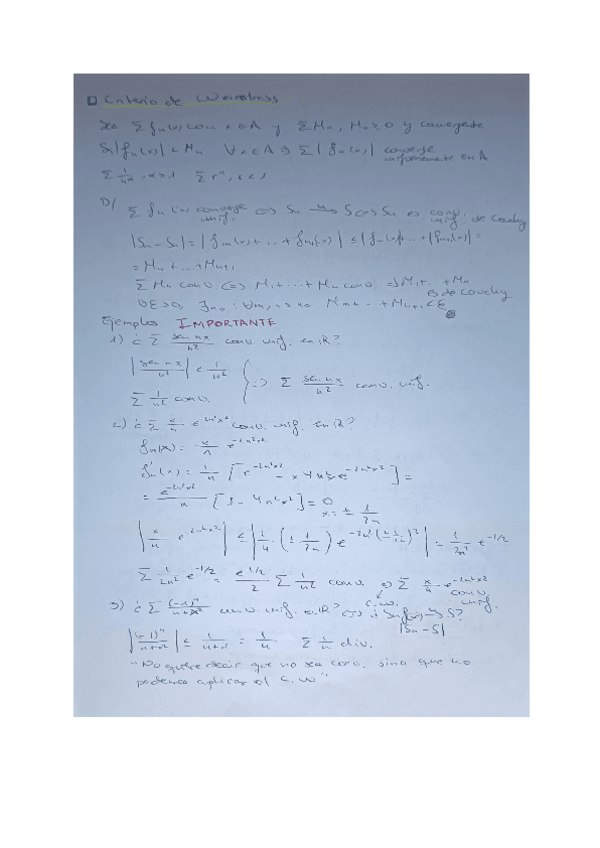 Criterio de Weirstrass
Sea Σ fn(x) con x ∈ A y ΣMn, Mn ≥ 0 y convergente
Si |fn(x)| ≤ Mn ∀x ∈ A ⇒ Σ|fn(x)| converge uniformemente en A
Σ 1/n^α, α > 1 Σ r^n, r < 1
D/ Σ fn(x) converge unif. ⇔ Sn → S ⇔ Sn es conv. unif. de Cauchy
|Sm - Sn| = |fm(x) + ... + fn+1(x)| ≤ |fm(x)| + ... + |fn+1(x)| =
= Mm + ... + Mn+1
Σ Mn conv ⇔ M1 + ... + Mn conv. ⇒ M1 + ... + Mn es de Cauchy
∀ε > 0, ∃n0 : ∀m, n > n0 Mm + ... + Mn+1 < ε
Ejemplos IMPORTANTE
1) ¿ Σ sen nx / n² conv. unif. en ℝ?
|sen nx / n²| ≤ 1/n²
Σ 1/n² conv.
⇒ Σ sen nx / n² conv. unif.
2) ¿ Σ x/n e^(-2n²x²) conv. unif. en ℝ?
fn(x) = x/n e^(-2n²x²)
f'n(x) = 1/n [e^(-2n²x²) - x4n²x e^(-2n²x²)] =
= e^(-2n²x²)/n [1 - 4n²x²] = 0
x = ± 1/2n
|x/n e^(-2n²x²)| ≤ |1/n (± 1/2n) e^(-2n²(± 1/2n)²)| = 1/2n² e^(-1/2)
Σ 1/2n² e^(-1/2) = e^(1/2)/2 Σ 1/n² conv ⇒ Σ x/n e^(-2n²x²) conv. unif.
C.W.
3) ¿ Σ (-1)^n / n+x² conv. unif. en ℝ? ⇔ ¿ Sn → S?
|Sn - S|
|(-1)^n / n+x²| ≤ 1/n+x² = 1/n Σ 1/n div.
"No quiere decir que no sea conv. sino que no
podemos aplicar el C.W"